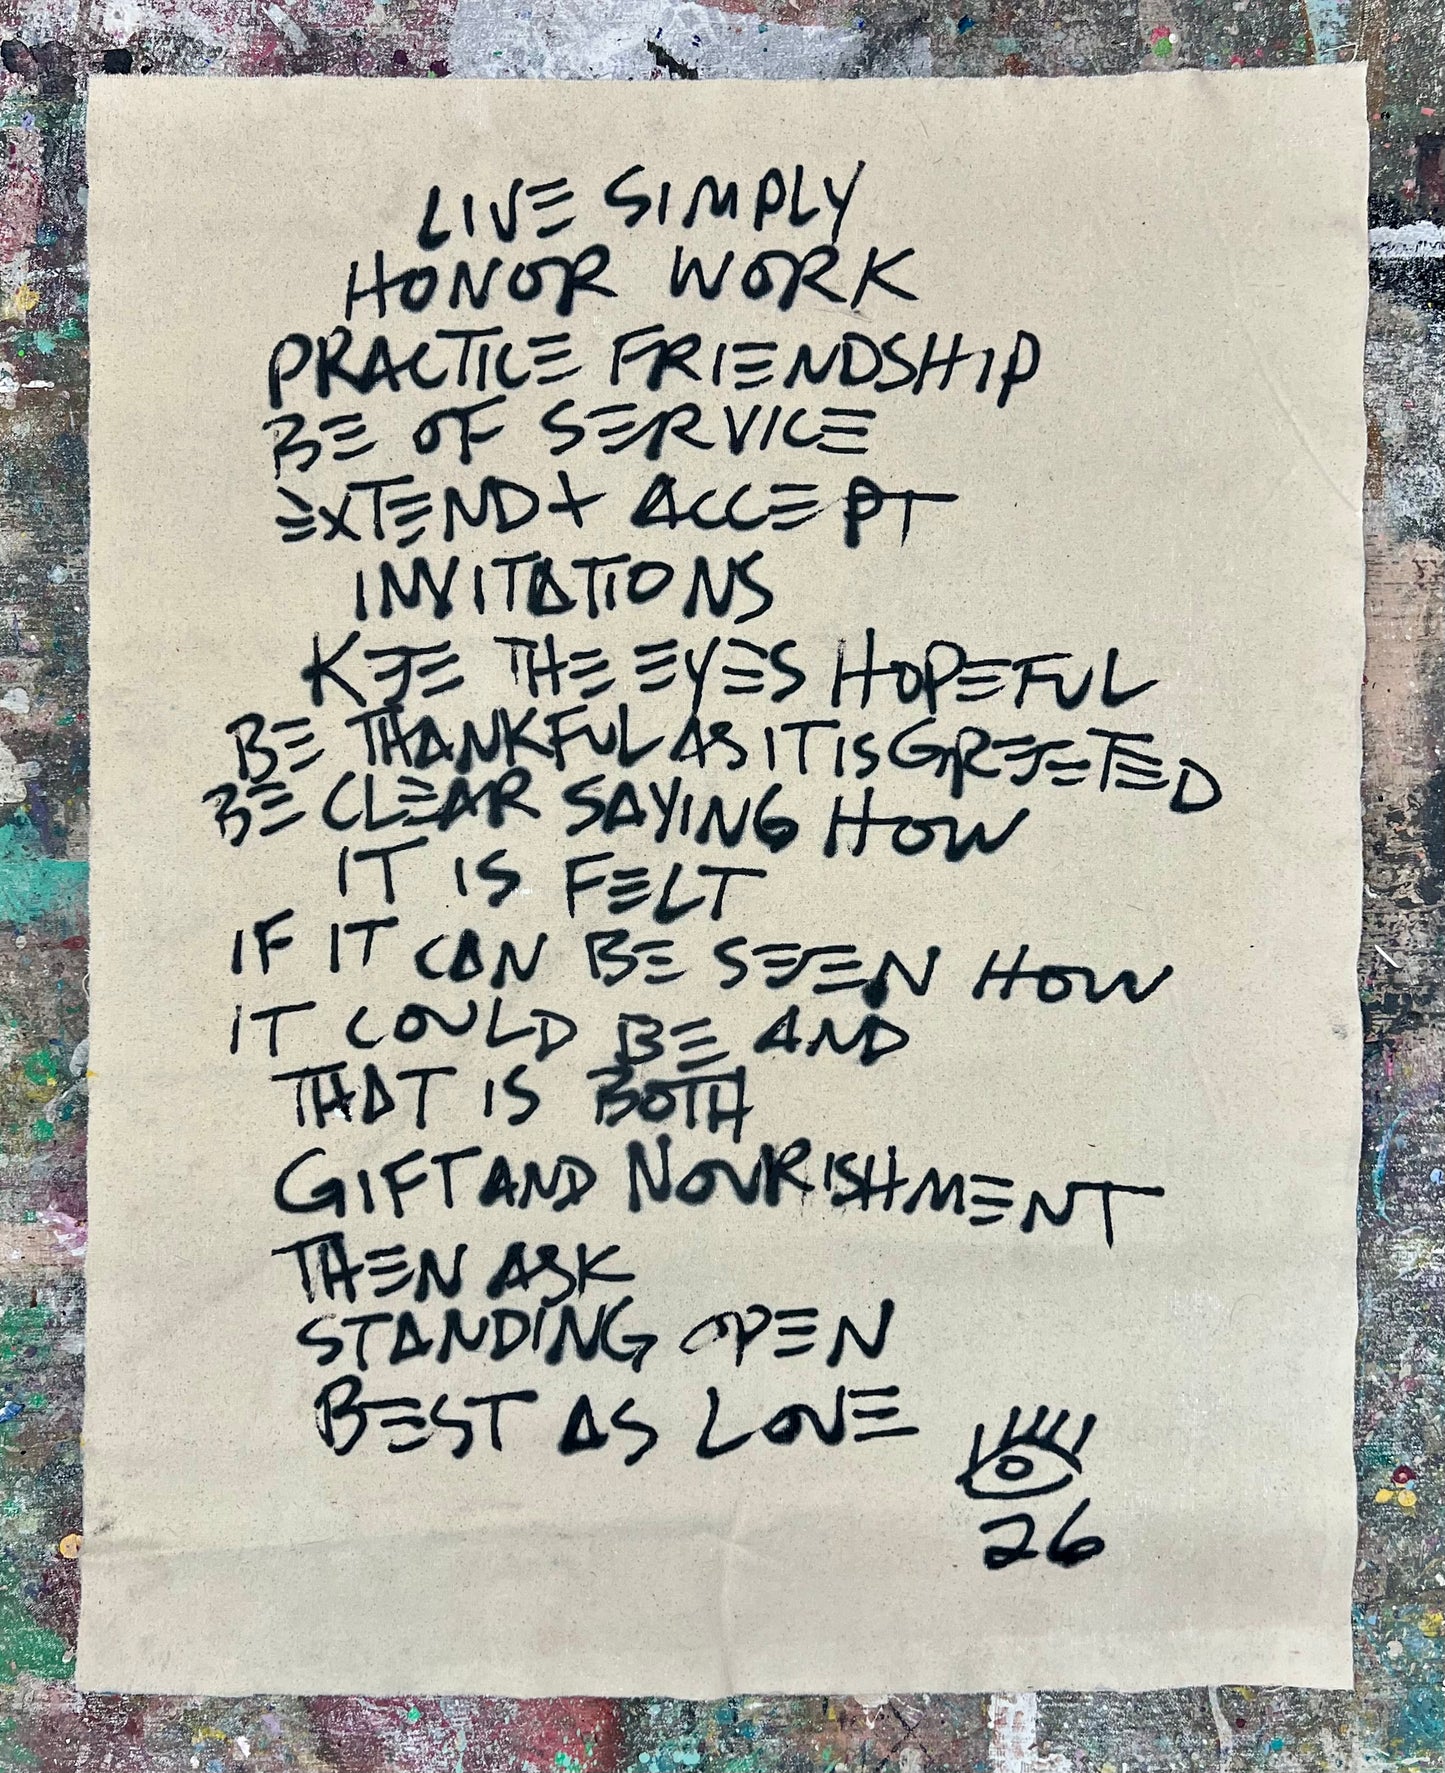 LIVE SIMPLY
HONOR WORK
PRACTICE FRIENDSHIP
BE OF SERVICE
EXTEND + ACCEPT
INVITATIONS
KEE THE EYES HOPEFUL
BE THANKFUL AS IT IS GREETED
BE CLEAR SAYING HOW
IT IS FELT
IF IT CAN BE SEEN HOW
IT COULD BE AND
THAT IS BOTH
GIFT AND NOURISHMENT
THEN ASK
STANDING OPEN
BEST AS LOVE
26